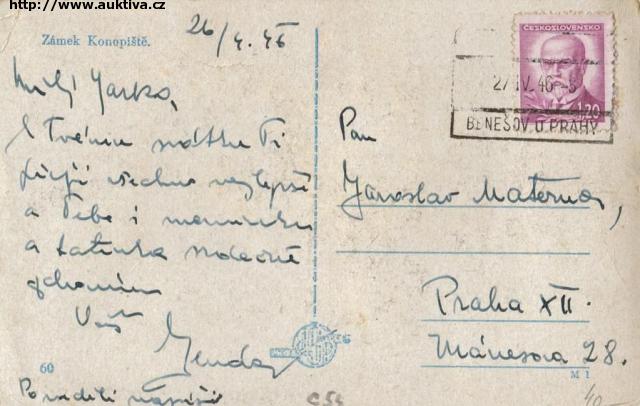 http://www.auktiva.cz
Zámek Konopiště.
26/4. 46
ČESKOSLOVENSKO
1.20
27 IV. 46-8
BENEŠOV U PRAHY
Milý Jarko,
k Tvému svátku Ti
přeji všechno nejlepší
a Tebe i maminku
a tatínka srdečně
zdravím
Váš
Jenda
Pondělí napíši
Pan
Jaroslav Materna,
Praha XII.
Mánesova 28.
60
M 1
40